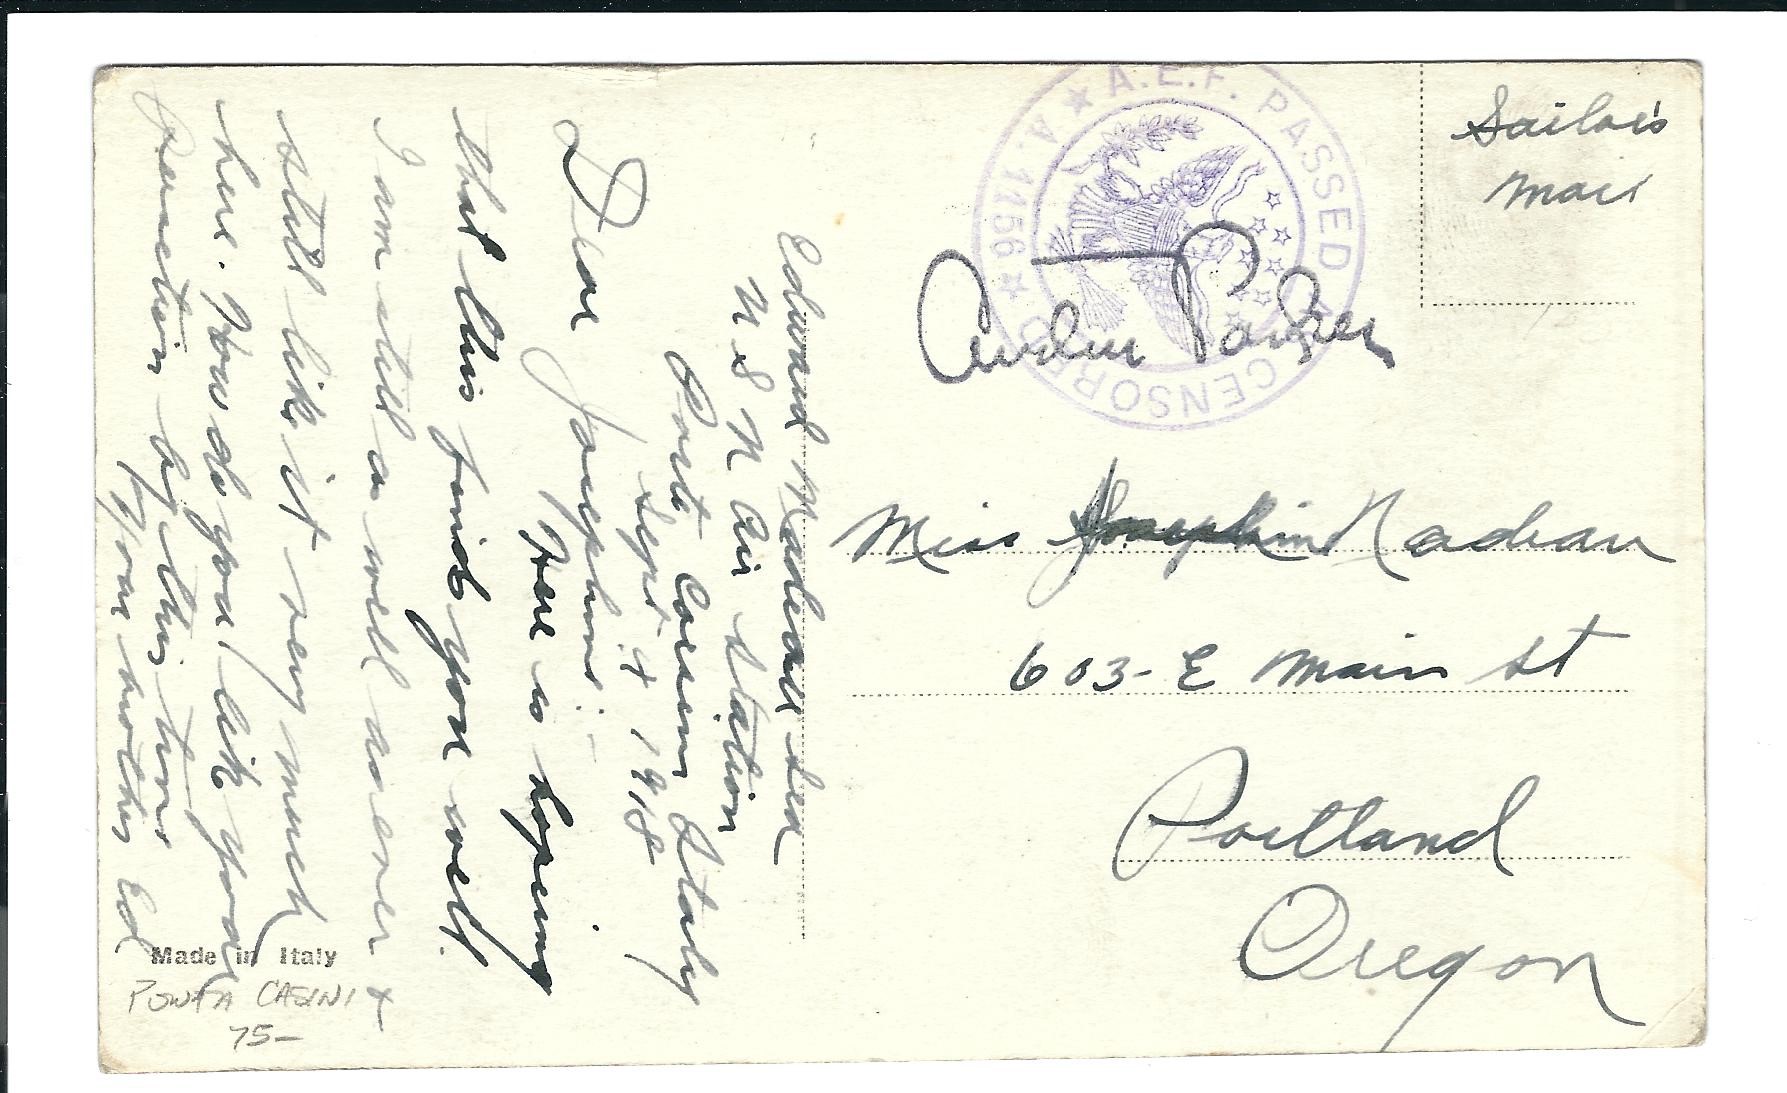 Edward Nadeau Sea
U S N Air Station
Porto Corsini Italy
Sept 4 1918
Dear Josephine :-
Here is hoping
that this finds you well.
I am still as well as ever &
still like it very much
here. How do you like your
by this time
Your brother Ed
Made in Italy
PORTA CASINI
75-
A.E.F. PASSED
CENSORED
A.1156
Sailor's
Mail
Parker
Miss Josephine Nadeau
603 - E Main St
Portland
Oregon